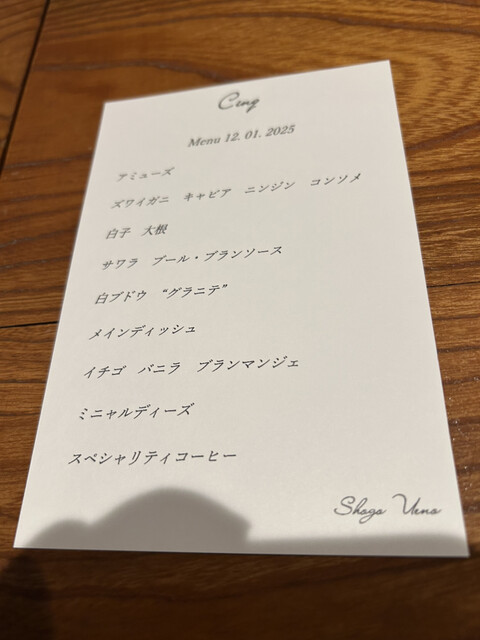 Cinq
Menu 12. 01. 2025
アミューズ
ズワイガニ キャビア ニンジン コンソメ
白子 大根
サワラ ブール・ブランソース
白ブドウ “グラニテ”
メインディッシュ
イチゴ バニラ ブランマンジェ
ミニャルディーズ
スペシャリティコーヒー
Shogo Ueno